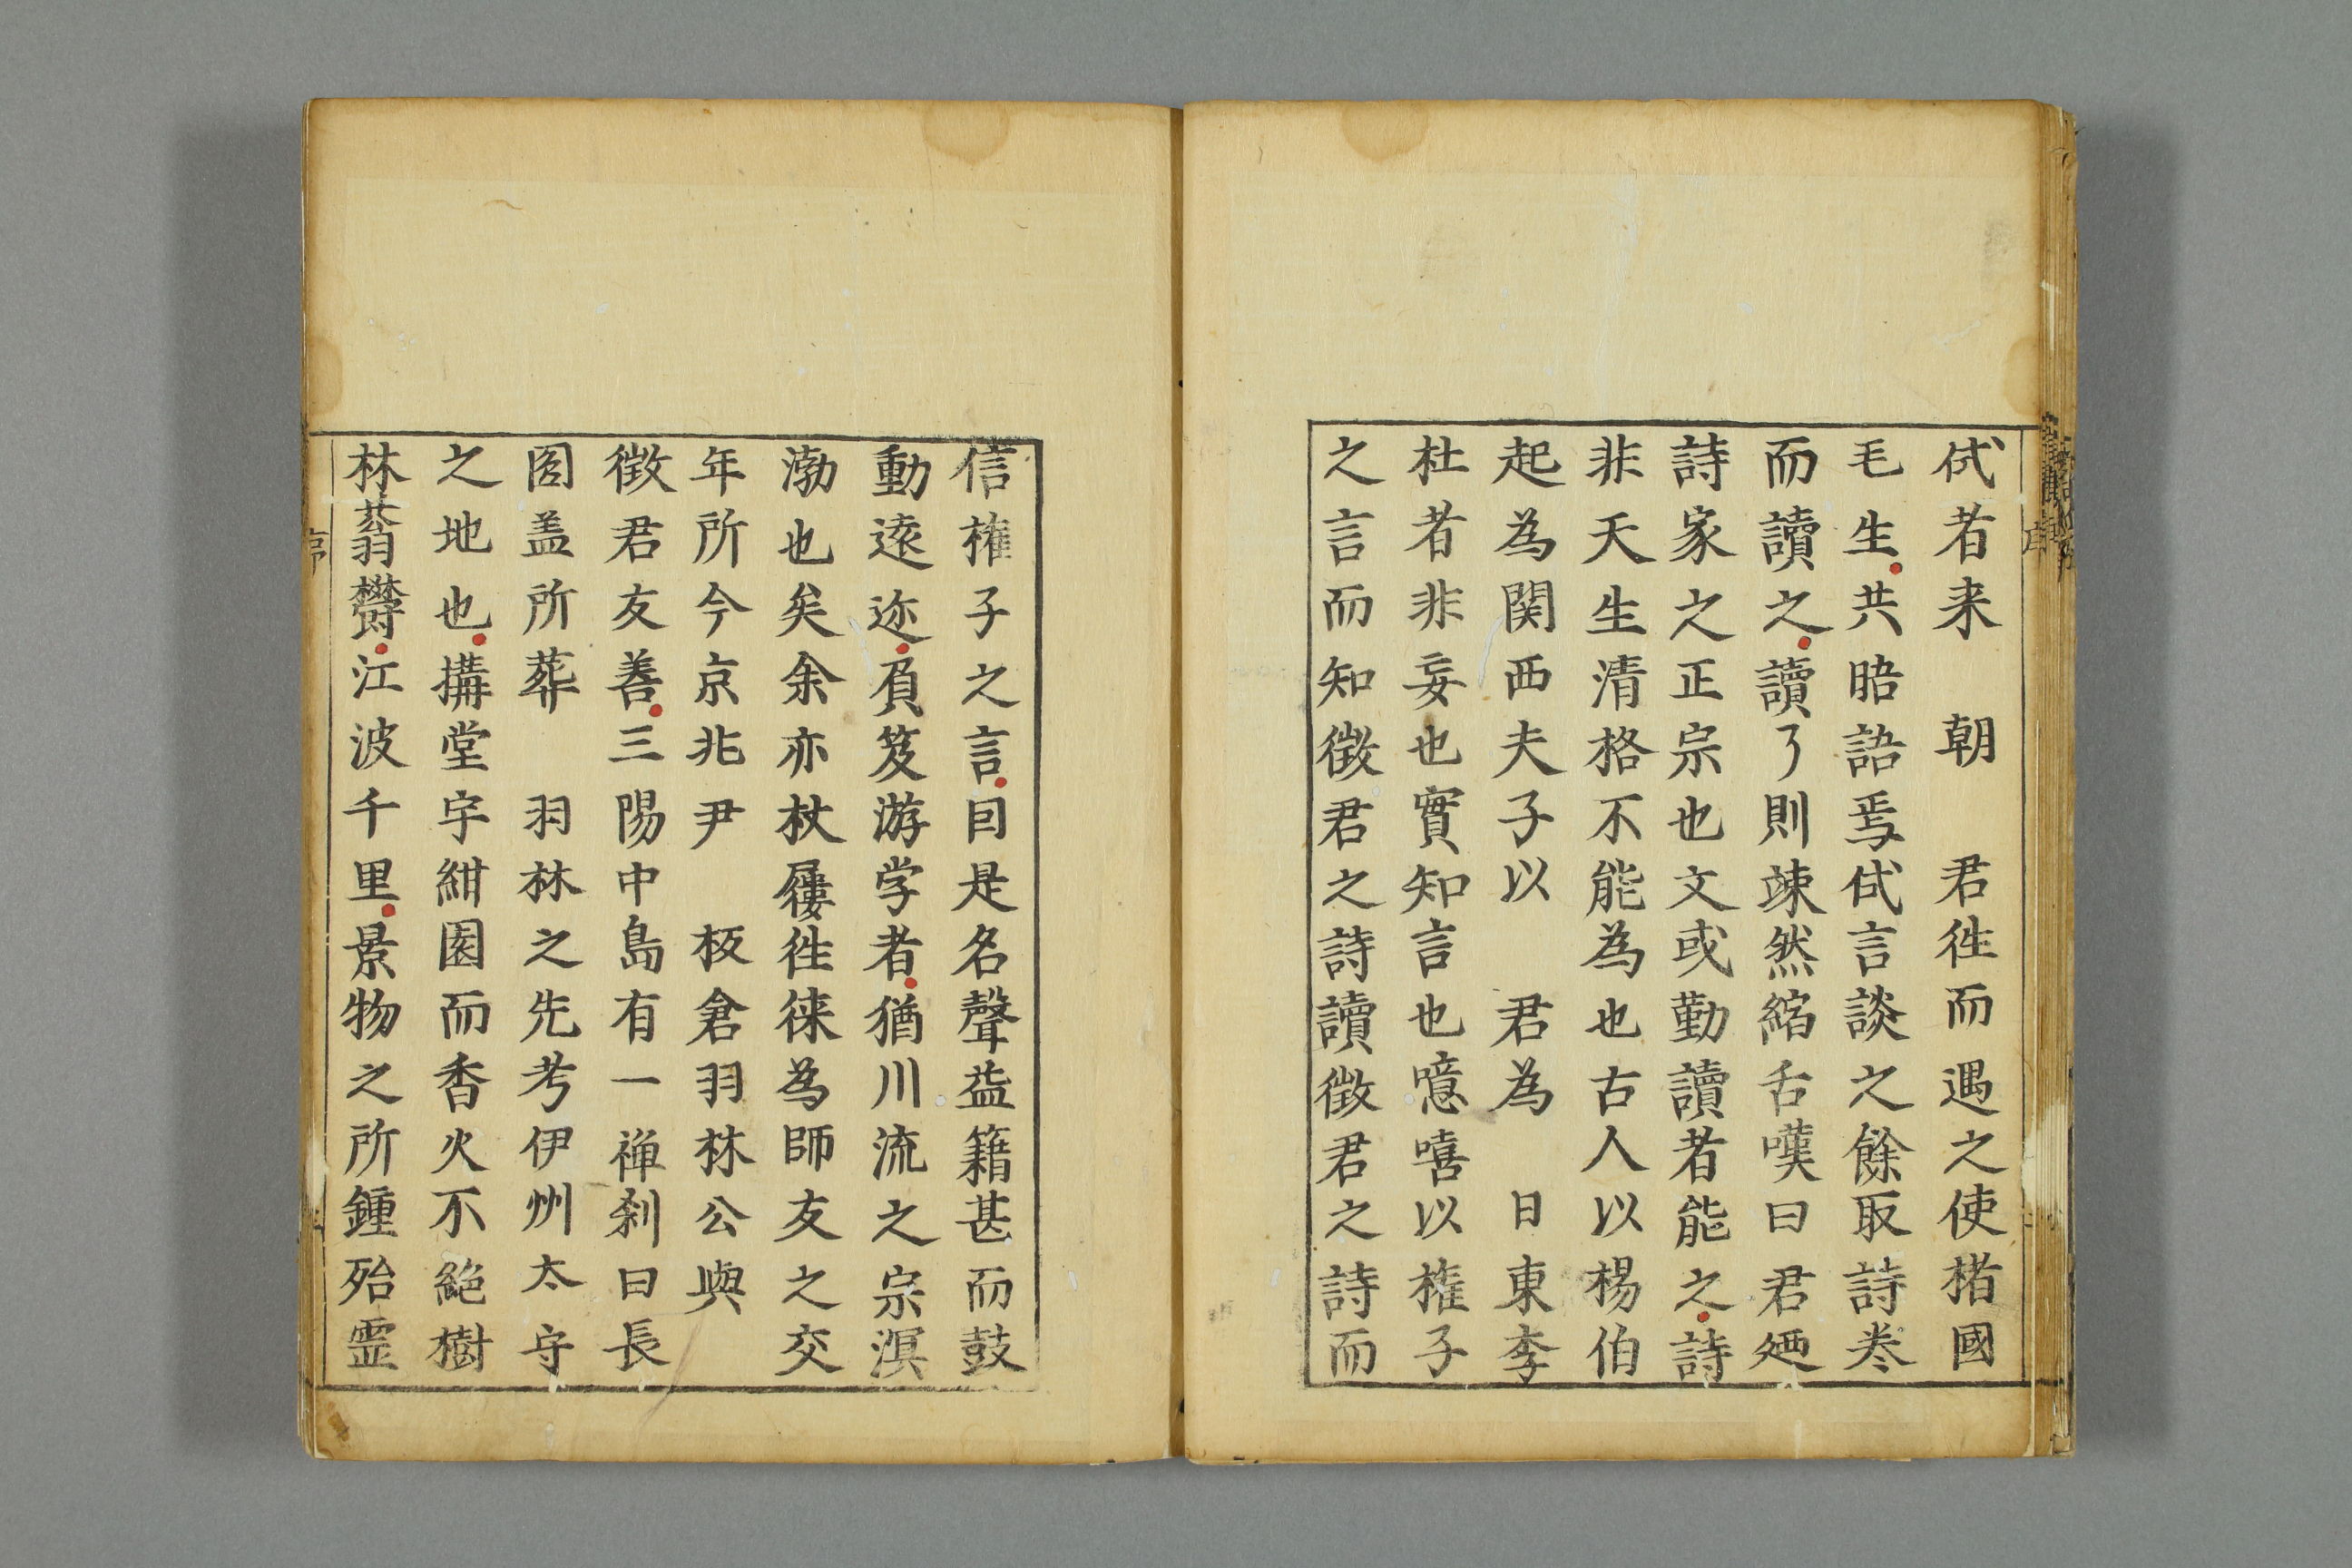 侙者来　朝　君徃而遇之使楮國
毛生共晤語焉侙言談之餘取詩巻
而讀之讀了則竦然縮舌嘆曰君廼
詩家之正宗也文或勤讀者能之詩
非天生清格不能為也古人以楊伯
起為関西夫子以　君為　日東李
杜者非妄也實知言也噫嘻以權子
之言而知徴君之詩讀徴君之詩而
信権子之言囙是名聲益籍甚而鼓
動遠迩負笈游学者猶川流之宗溟
渤也矣余亦杖屨徃徠為師友之交
年所今京兆尹　板倉羽林公與
徴君友善三陽中島有一禅刹曰長
圎盖所葬　羽林之先考伊州太守
之地也搆堂宇紺園而香火不絶樹
林蓊欝江波千里景物之所鍾殆霊
序